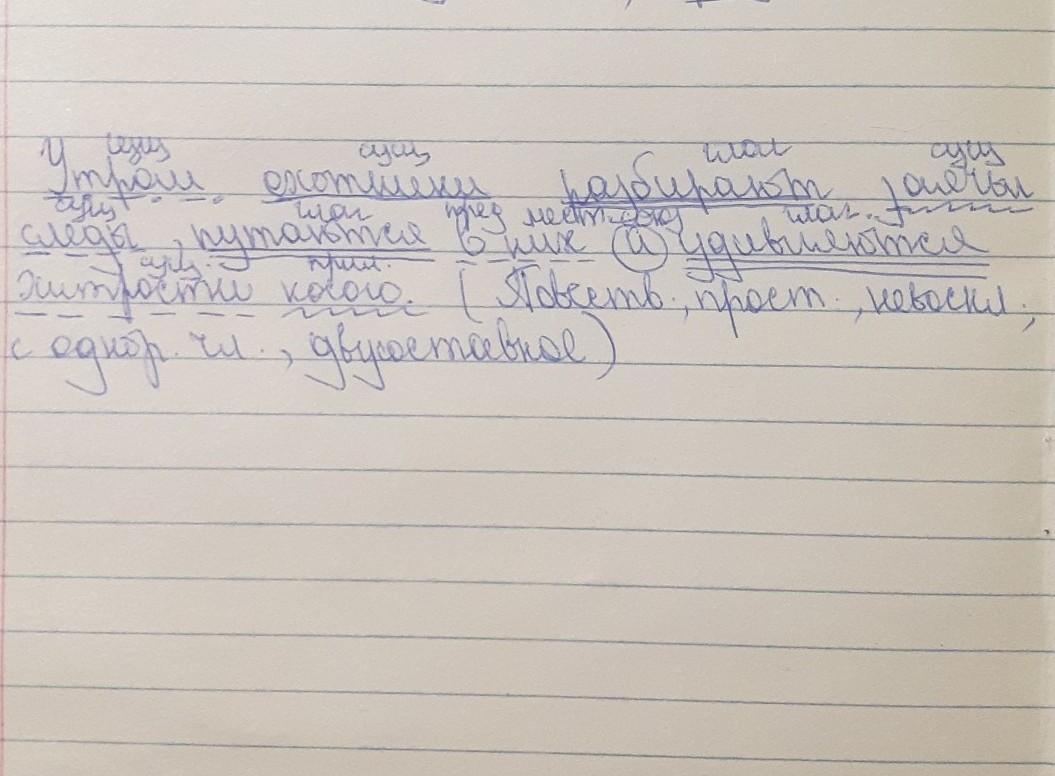 сущ сущ глаг сущ
Утром охотники разбирают заячьи
сущ глаг пред мест. союз глаг.
следы, путаются в них и удивляются
сущ. прил.
хитрости косого. (Повеств., прост., невоскл.,
с однор. чл., двусоставное)